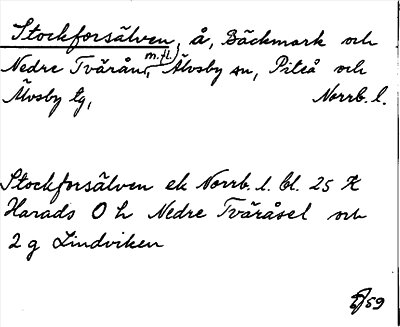 Stockforsälven, å, Bäckmark och
Nedre Tvärån, m.fl. Älvsby sn, Piteå och
Älvsby tg, Norrb. l.
Stockforsälven ek Norrb. l. bl. 25 K
Harads O h Nedre Tväråsel och
2 g Lindviken
59